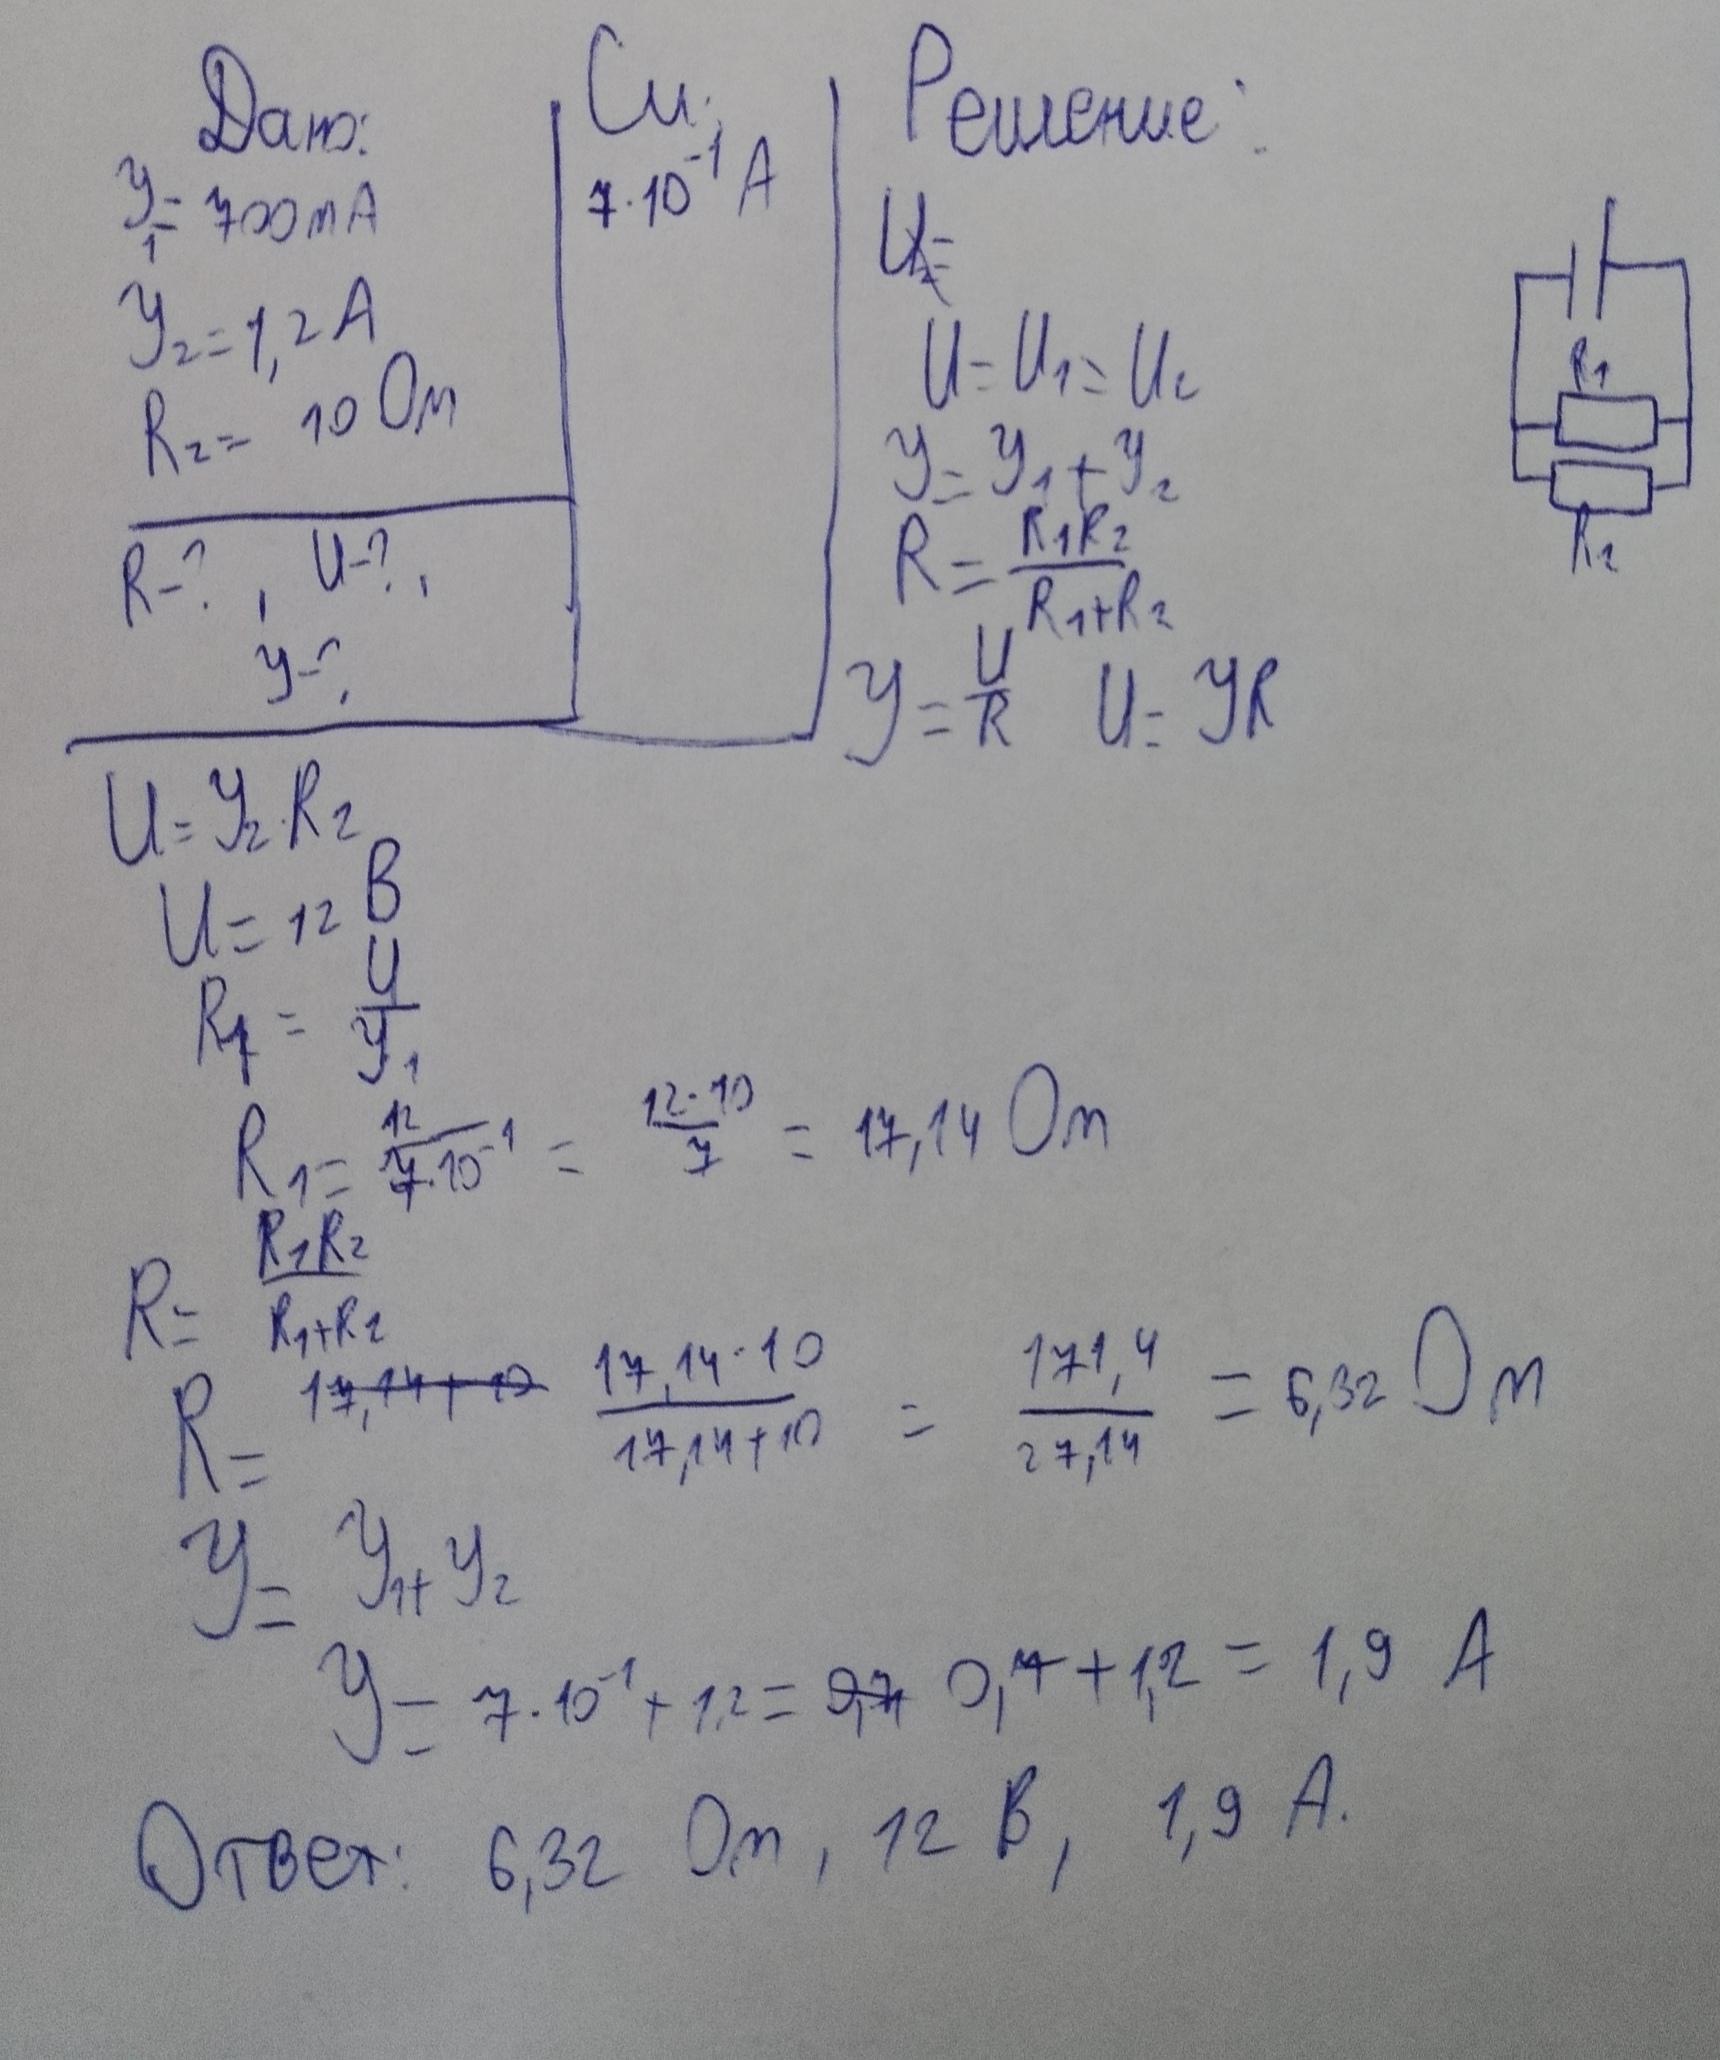 Дано:
У₁ = 700 mA
У₂ = 1,2 А
R₂ = 10 Ом
R-? , U-? ,
У-?
Си:
7·10⁻¹ А
Решение:
U=
U = U₁ = U₂
У = У₁ + У₂
R = R₁R₂ / R₁+R₂
У = U/R U = УR
R₁
R₂
U = У₂·R₂
U = 12 В
R₁ = U/У₁
R₁ = 12 / 7·10⁻¹ = 12·10 / 7 = 17,14 Ом
R = R₁R₂ / R₁+R₂
R = 17,14+10 17,14·10 / 17,14+10 = 171,4 / 27,14 = 6,32 Ом
У = У₁+У₂
У = 7·10⁻¹ + 1,2 = 0,7 0,7 + 1,2 = 1,9 А
Ответ: 6,32 Ом, 12 В, 1,9 А.